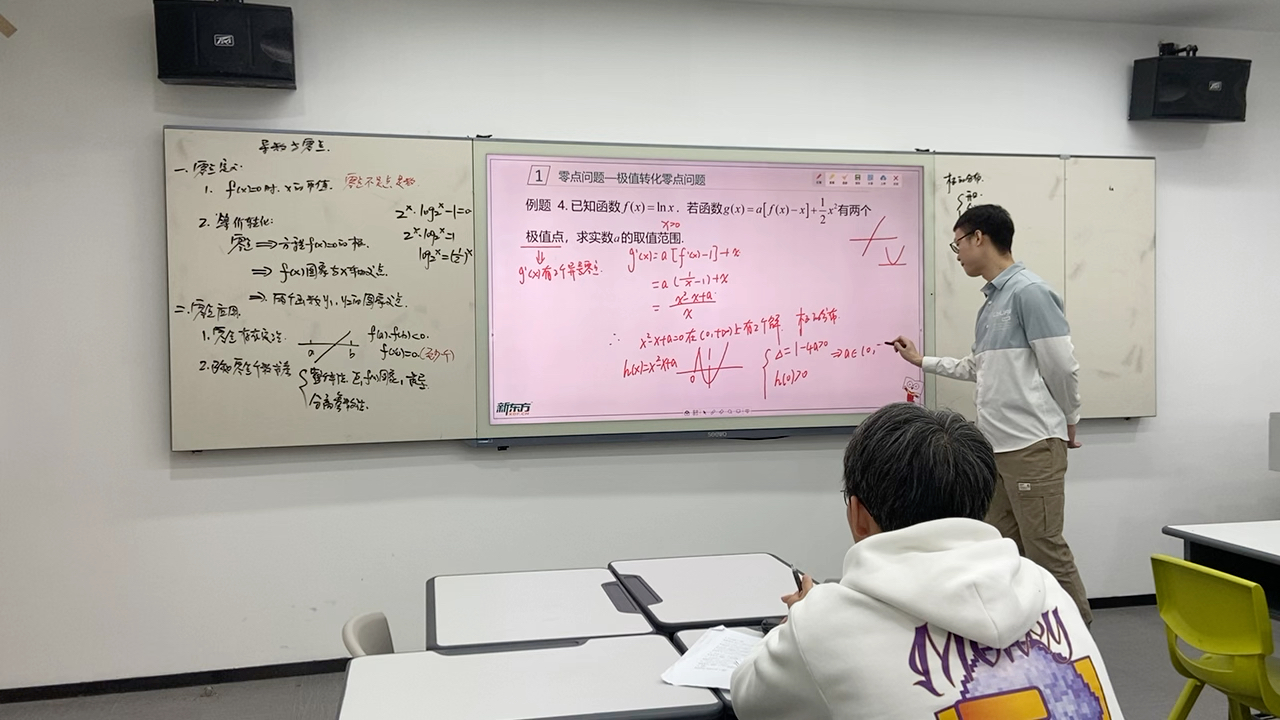 导数与零点.
一. 零点定义:
1. f(x)=0时, x的取值. 零点不是点是数
2. 等价转化:
零点 ⇒ 方程f(x)=0的根.
⇒ f(x)图象与x轴的交点.
⇒ 两个函数y₁, y₂的图象交点.
2ˣ·log₂ˣ-1=0
2ˣ·log₂ˣ=1
log₂ˣ=(½)ˣ
二. 零点应用:
1. 零点存在定理.
a b
f(a)·f(b)<0.
2.
分离参数法.
1 零点问题—极值转化零点问题
例题 4. 已知函数 f(x)=ln x. 若函数 g(x)=a[f(x)-x]+½x²有两个
x>0
极值点, 求实数a的取值范围.
g'(x)有2个异号零点.
g'(x)=a[f'(x)-1]+x
=a(1/x-1)+x
=(x²-x+a)/x
∴ x²-x+a=0在(0,+∞)上有2个解. 根的分布.
h(x)=x²-x+a
0
Δ=1-4a>0
h(0)>0
⇒a∈(0,
新东方
根的分布.
Money